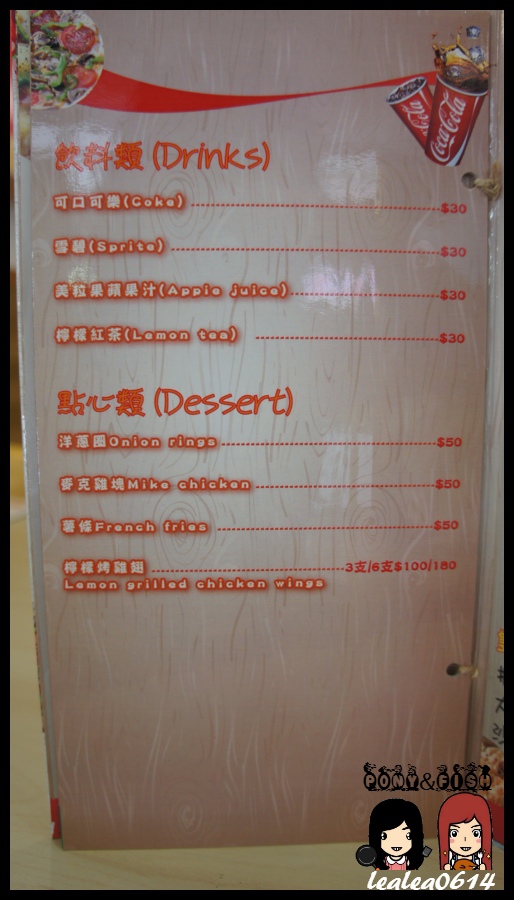 Coca-Cola
Coca-Cola
飲料類 (Drinks)
可口可樂(Coke) $30
雪碧(Sprite) $30
美粒果蘋果汁(Apple juice) $30
檸檬紅茶(Lemon tea) $30
點心類 (Dessert)
洋蔥圈Onion rings $50
麥克雞塊Mike chicken $50
薯條French fries $50
檸檬烤雞翅 3支/6支$100/180
Lemon grilled chicken wings
PONY&FISH
lealea0614